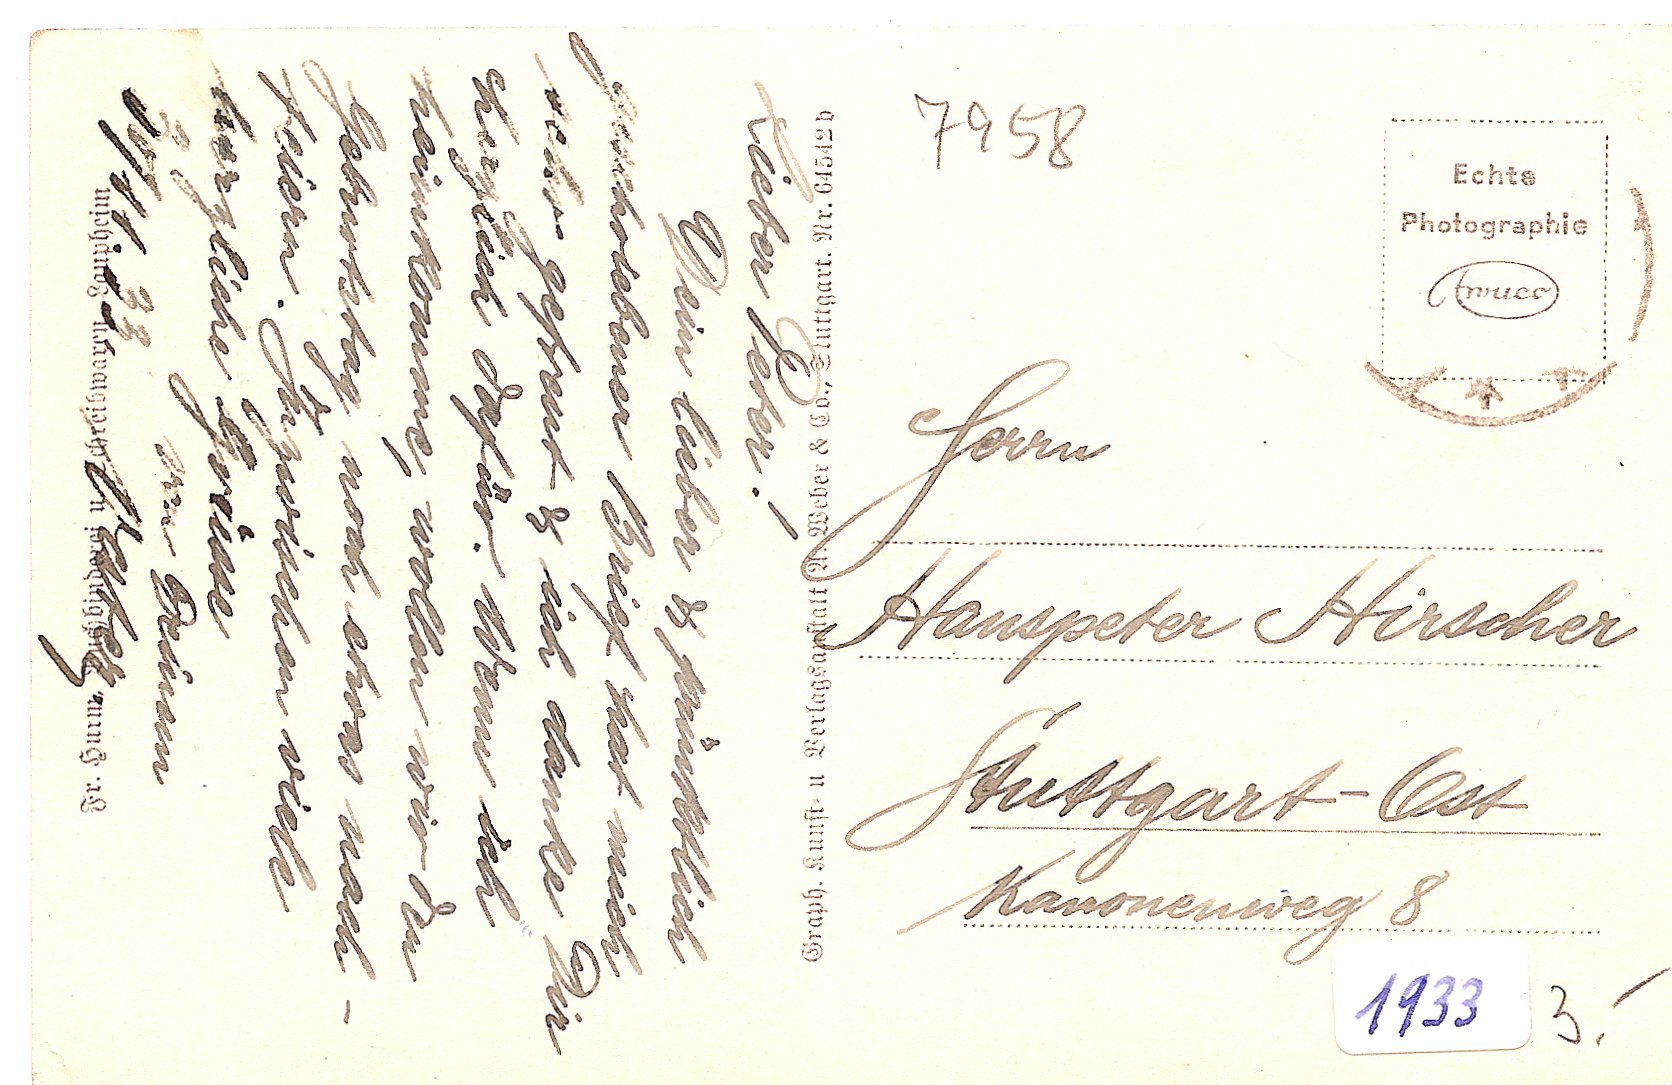 Lieber Peter!
Dein lieber & pünktlich
geschriebener Brief hat mich
sehr gefreut & ich danke Dir
herzlich dafür. Wenn ich
heimkomme, wollen wir den
Geburtstag noch etwas nach-
feiern. Inzwischen viele
herzliche Grüsse
von Deinem
33
Fr. Hurm, Buchbinderei u Schreibwaren Laupheim
Graph. Kunst- u Verlagsanstalt A. Weber & Co., Stuttgart. Nr. 64542b
7958
Echte
Photographie
Herrn
Hanspeter Hirscher
Stuttgart-Ost
Kanonenweg 8
1933
3.